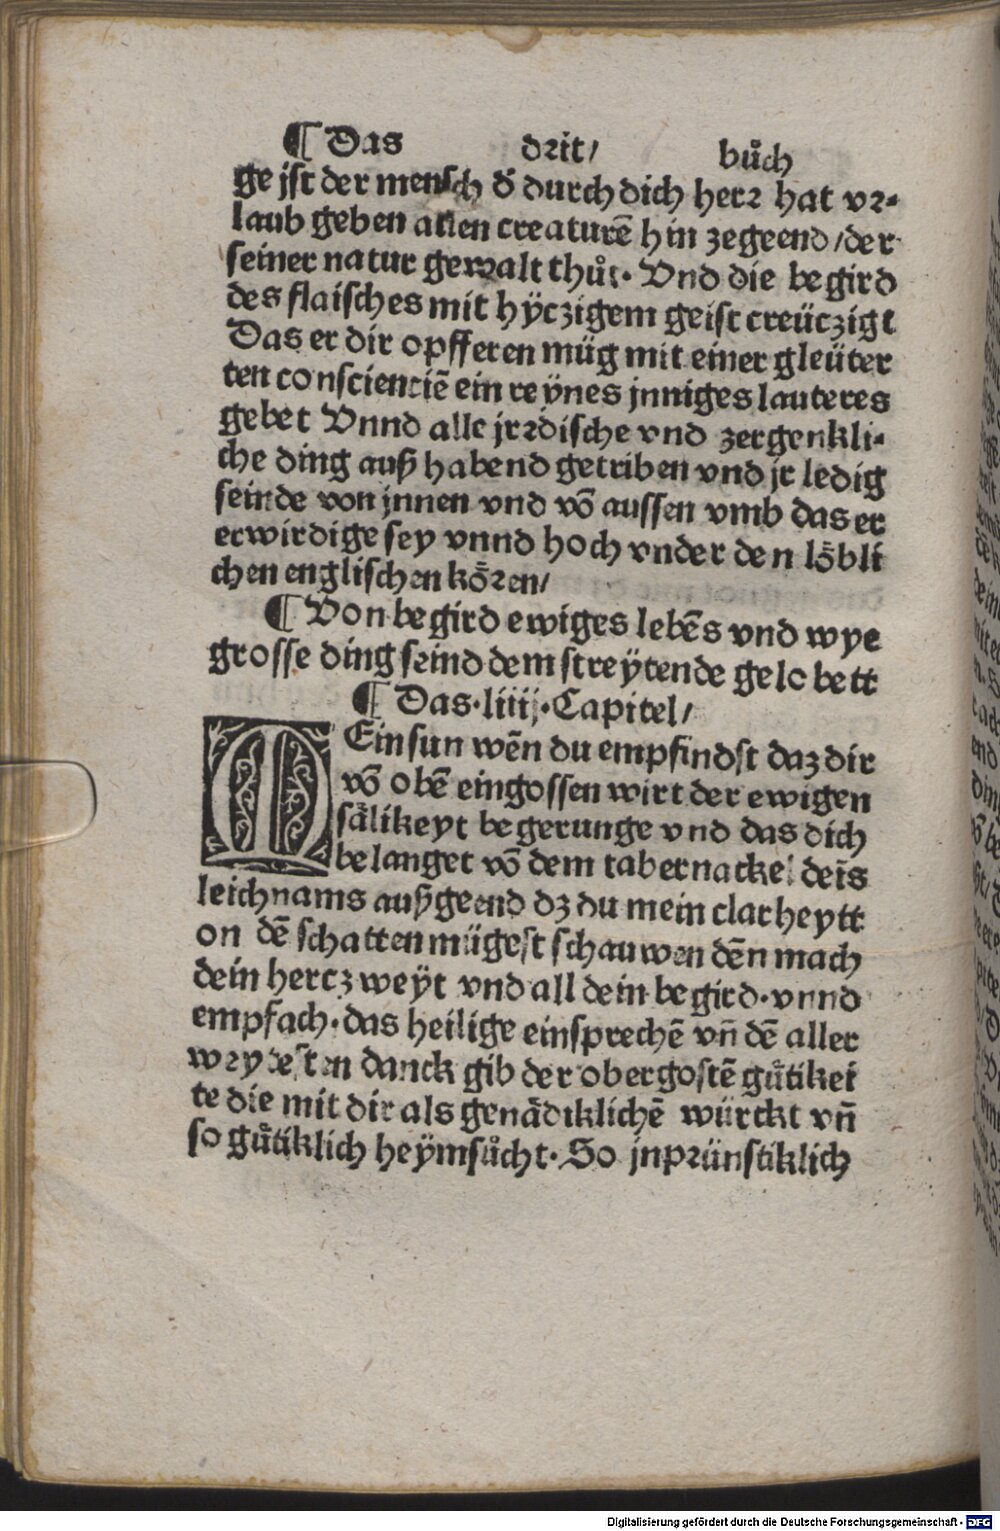 ¶ Das drit/ bůch
ge jst der mensch d̓ durch dich herꝛ hat vꝛ⸗
laub geben allen creaturē hin zegeend/der
seiner natur gewalt thůt. Vnd die begird
des flaisches mit hÿczigem geist creüczigt
Das er dir opfferen müg mit einer gleüter
ten conscienciē ein reÿnes jnniges lauteres
gebet Vnnd alle jrꝛdische vnd zergenkli⸗
che ding auß habend getriben vnd jr ledig
seinde von jnnen vnd vō aussen vmb das er
erwirdige sey vnnd hoch vnder den lȫbli
chen englischen kȫꝛen/
¶ Von begird ewiges lebēs vnd wye
grosse ding seind dem streÿtende gelobett
¶ Das.liiij.Capitel/
MEin sun wēn du empfindst daz dir
vō obē eingossen wirt der ewigen
sälikeyt begerunge vnd das dich
belanget vō dem tabernackel deīs
leichnams außgeend dz du mein clarheytt
on dē schatten mügest schauwen dēn mach
dein hercz weÿt vnd all dein begird.vnnd
empfach.das heilige einsprechē vn̄ dē aller
weydesten danck gib der obergostē gůtikei
te die mit dir als genädiklichē würckt vn̄
so gůtiklich heÿmsůcht. So jnpꝛünstiklich
Digitalisierung gefördert durch die Deutsche Forschungsgemeinschaft - DFG